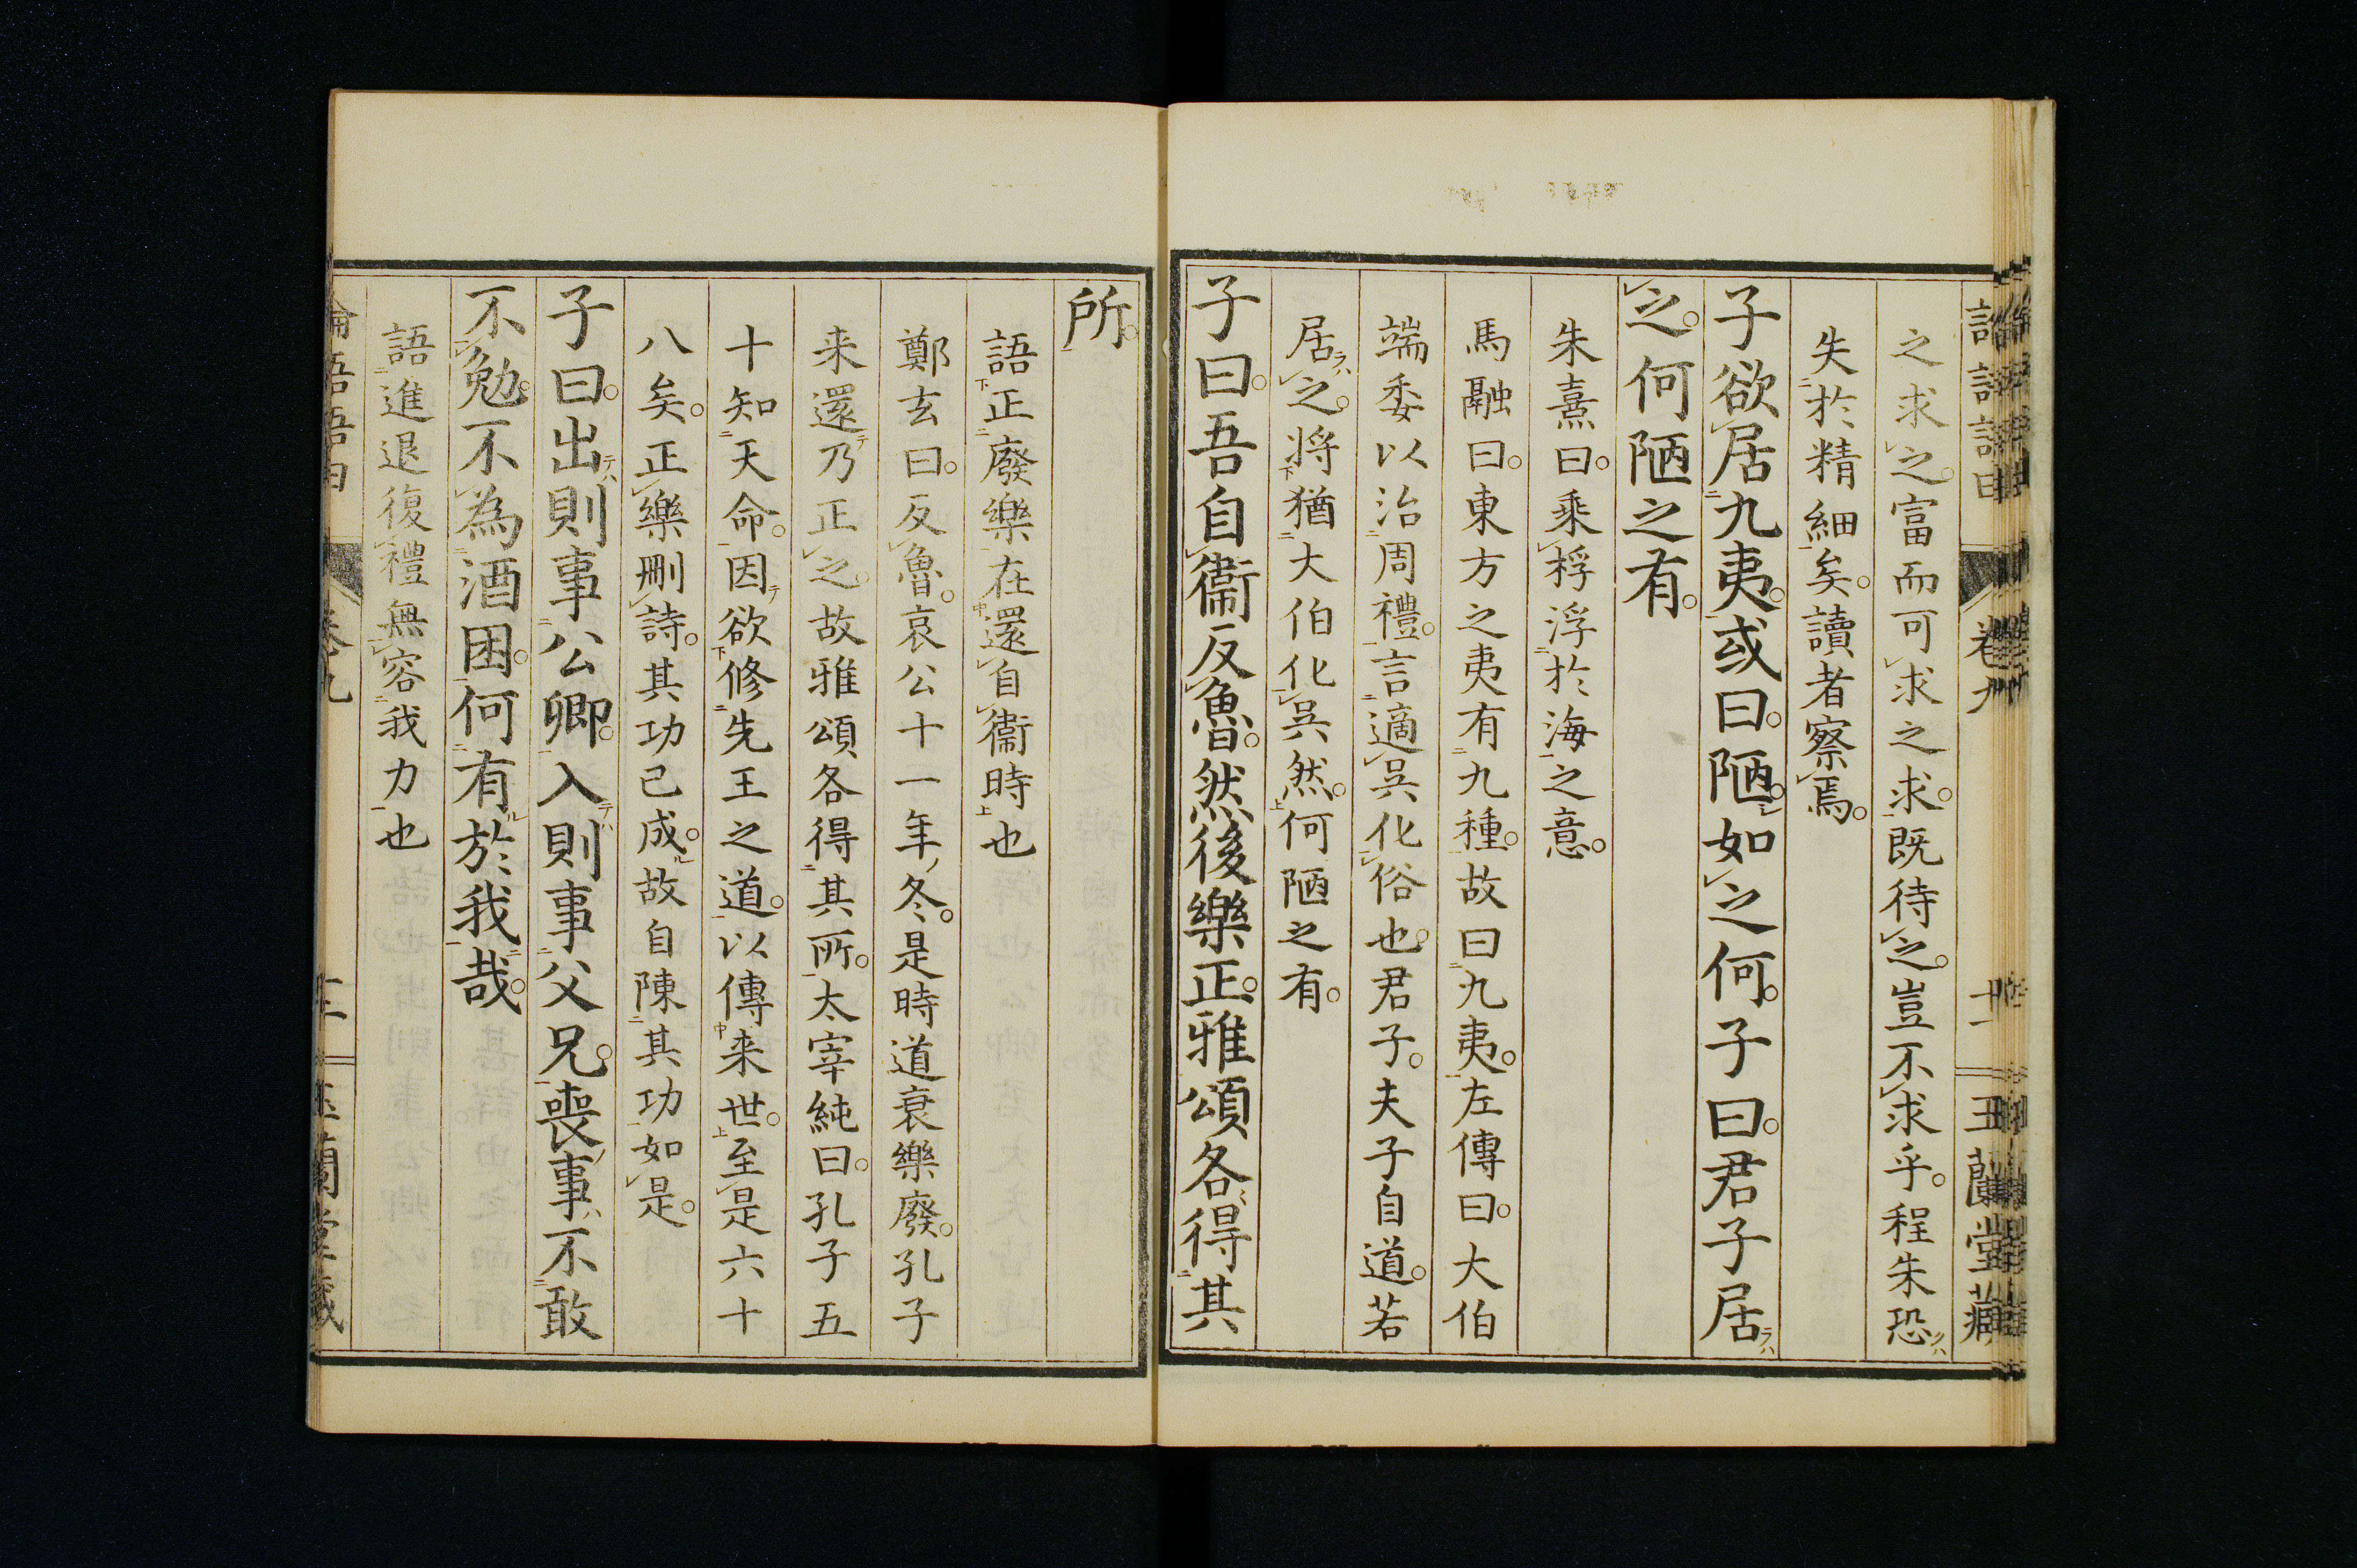 卷九
之求之。富而可求之求。既待之。豈不求乎。程朱恐
失於精細矣。讀者察焉。
子欲居九夷。或曰。陋。如之何。子曰。君子居
之。何陋之有。
朱熹曰。乘桴浮於海之意。
馬融曰。東方之夷有九種。故曰九夷。左傳曰。大伯
端委以治周禮。言適吳化俗也。君子。夫子自道。若
居之。將猶大伯化吳然。何陋之有。
子曰。吾自衞反魯。然後樂正。雅頌各得其
所。
語正廢樂在還自衞時也
鄭玄曰。反魯。哀公十一年冬。是時道衰樂廢。孔子
来還乃正之。故雅頌各得其所。太宰純曰。孔子五
十知天命。因欲修先王之道。以傳来世。至是六十
八矣。正樂刪詩。其功已成。故自陳其功如是。
子曰。出則事公卿。入則事父兄。喪事不敢
不勉。不為酒困。何有於我哉。
語進退復禮無容我力也